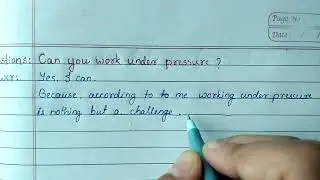 Page No
Date
stions: Can you work under pressure ?
wer: Yes, I can.
Because, according to to me working under pressure
is nothing but a challenge .